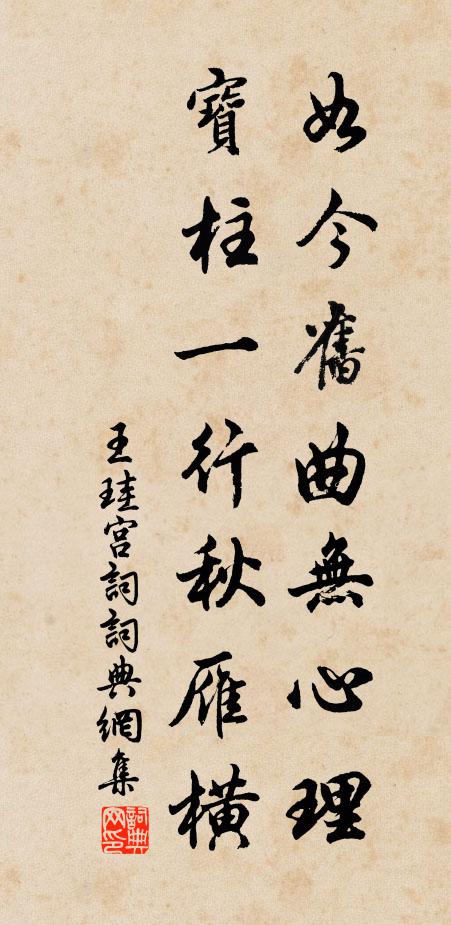 如今舊曲無心理
寶柱一行秋雁橫
王珪宮詞詞典網集
詞典網印